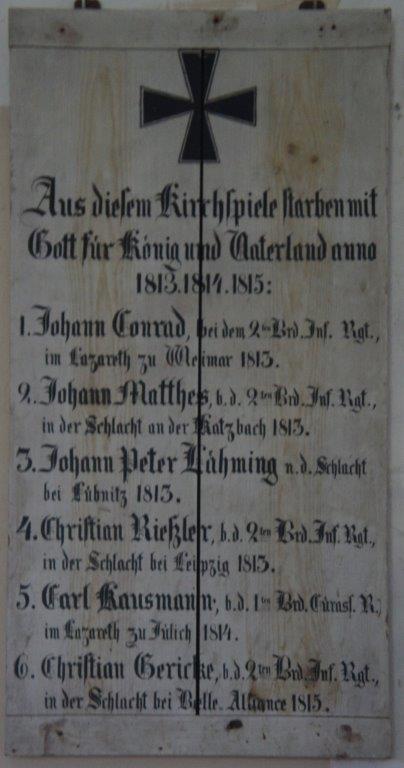 Aus diesem Kirchspiele starben mit
Gott für König und Vaterland anno
1813.1814.1815:
1. Johann Conrad, bei dem 2ten Brd. Inf. Rgt.,
im Lazareth zu Weimar 1813.
2. Johann Matthes, b. d. 2ten Brd. Inf. Rgt.,
in der Schlacht an der Katzbach 1813.
3. Johann Peter Lähming n. d. Schlacht
bei Lübnitz 1813.
4. Christian Rießler, b. d. 2ten Brd. Inf. Rgt.,
in der Schlacht bei Leipzig 1813.
5. Carl Kausmann, b. d. 1ten Brd. Cürass. R.,
im Lazareth zu Jülich 1814.
6. Christian Gericke, b. d. 2ten Brd. Inf. Rgt.,
in der Schlacht bei Belle. Alliance 1815.